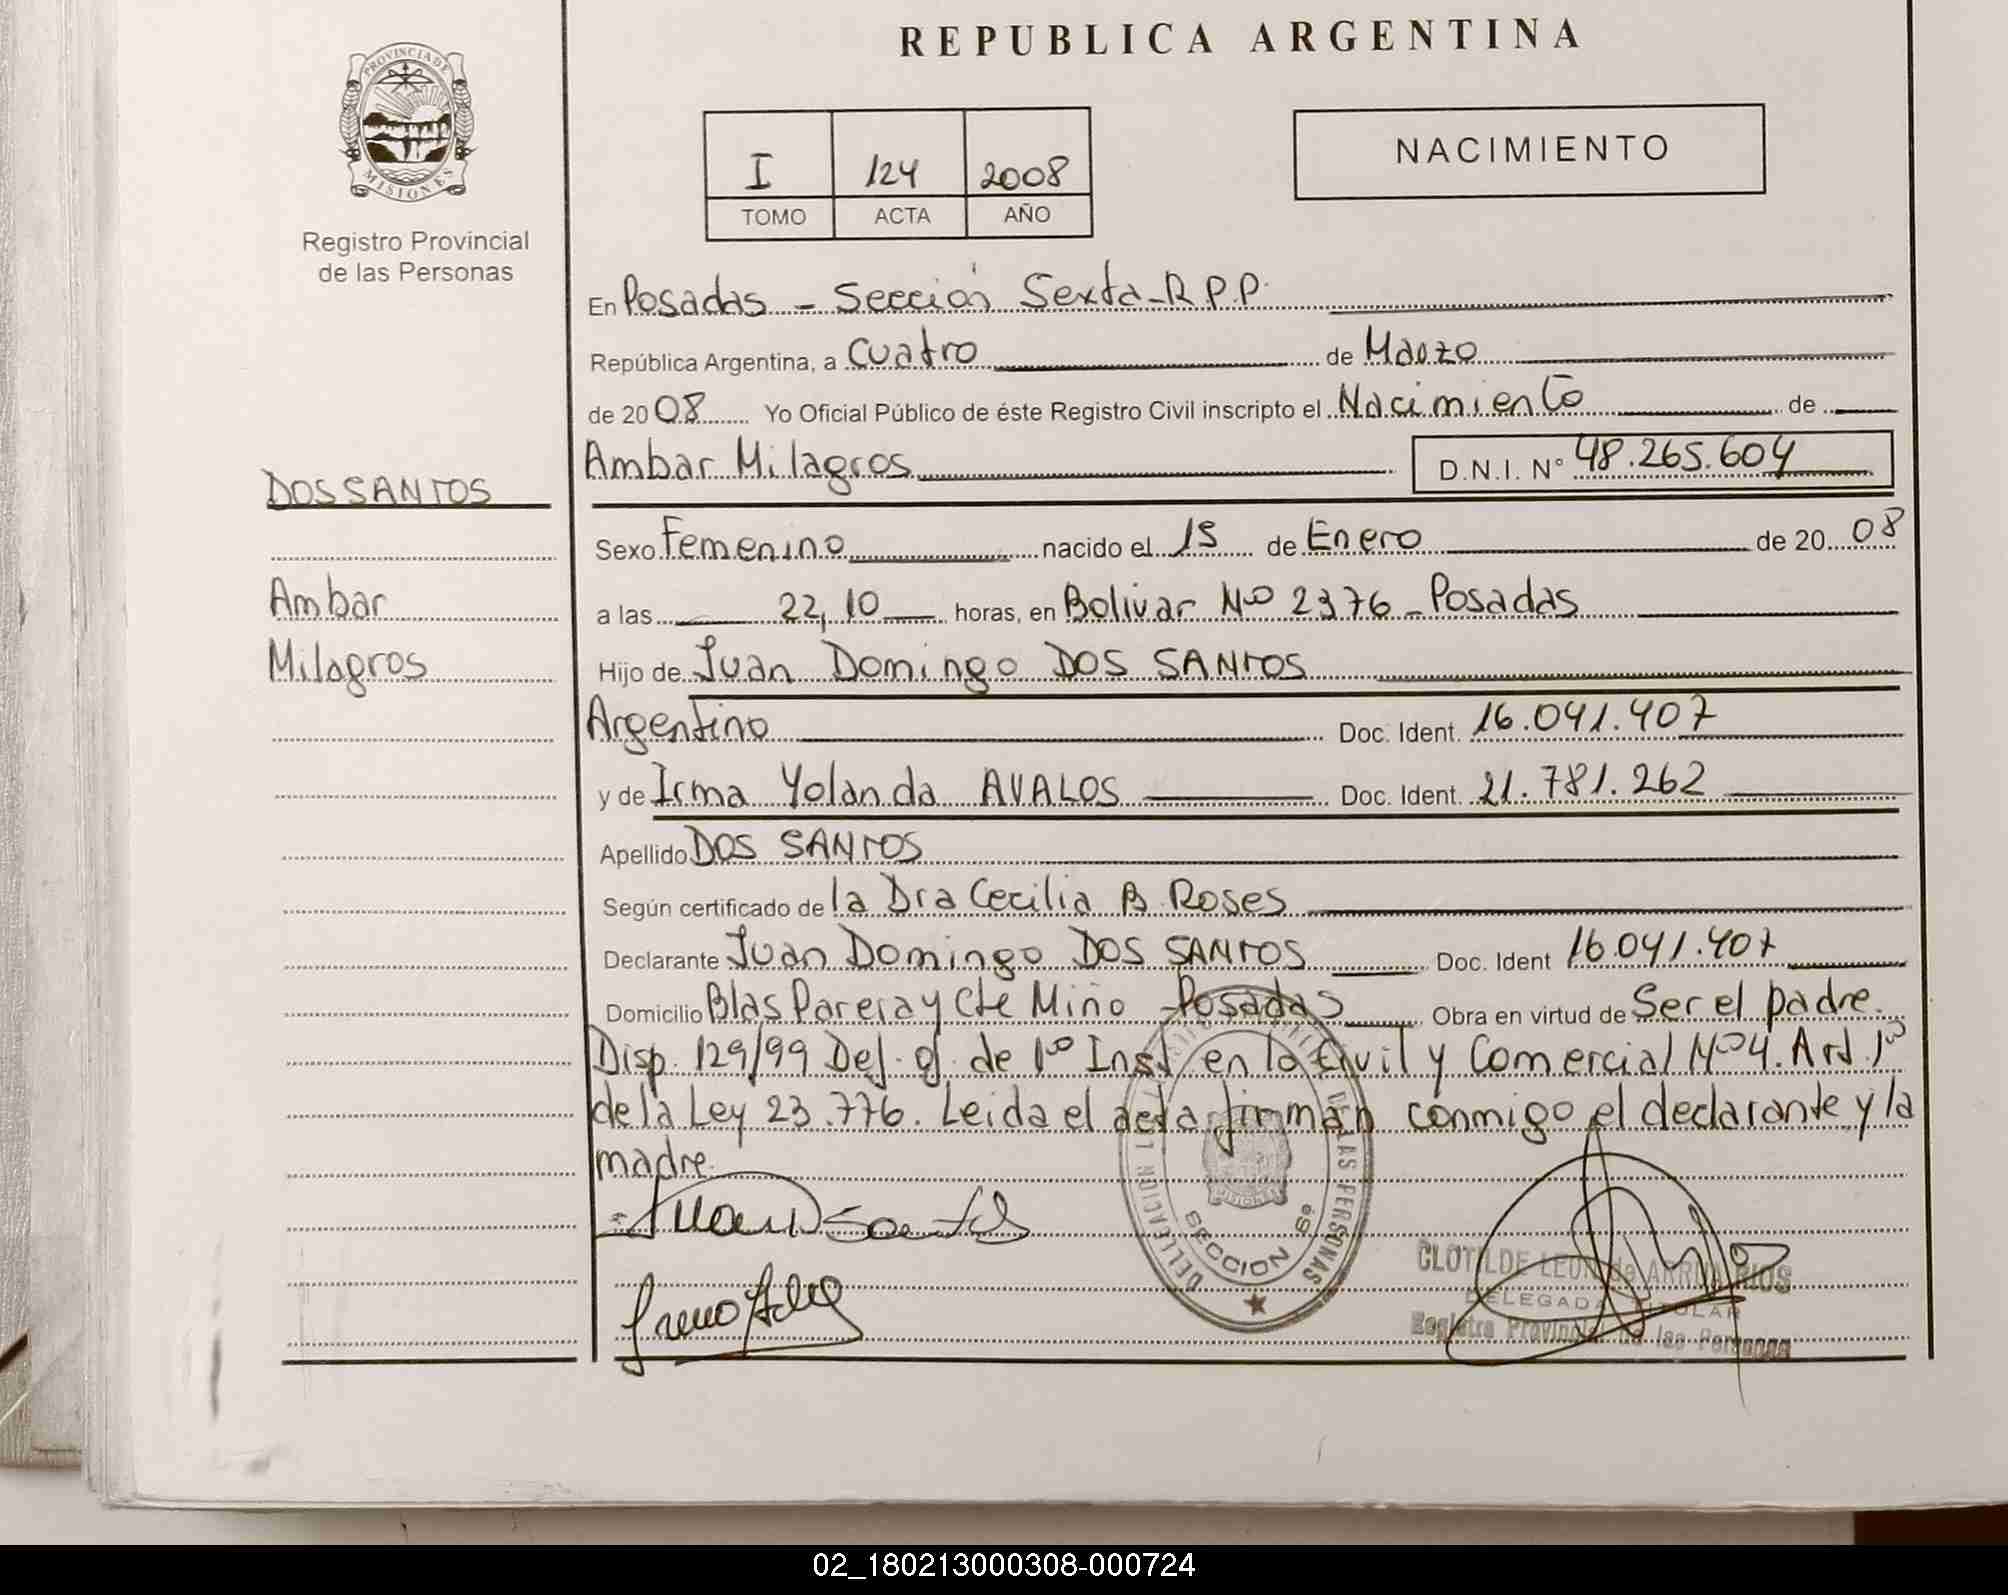 REPUBLICA ARGENTINA
PROVINCIA DE
MISIONES
Registro Provincial
de las Personas
I 124 2008
TOMO ACTA AÑO
NACIMIENTO
En Posadas - Sección Sexta - R.P.P.
República Argentina, a Cuatro de Marzo
de 2008 Yo Oficial Público de éste Registro Civil inscripto el Nacimiento de
Ambar Milagros D.N.I. N° 48.265.604
DOS SANTOS
Sexo Femenino nacido el 15 de Enero de 2008
Ambar
a las 22,10 horas, en Bolivar Nº 2376 - Posadas
Milagros
Hijo de Juan Domingo DOS SANTOS
Argentino Doc. Ident. 16.041.407
y de Irma Yolanda AVALOS Doc. Ident. 21.781.262
Apellido DOS SANTOS
Según certificado de la Dra Cecilia B Roses
Declarante Juan Domingo DOS SANTOS Doc. Ident 16.041.407
Domicilio Blas Parera y Cte Miño - Posadas Obra en virtud de Ser el padre.
Disp. 129/99 Def. of. de 1º Inst en lo Civil y Comercial Nº 4. Art. 1º
de la Ley 23.776. Leida el acta firman conmigo el declarante y la
madre.
DE LAS PERSONAS
SECCION 6º
CLOTILDE LEON de
DELEGADA TITULAR
Registro Provincial de las Personas
02_180213000308-000724